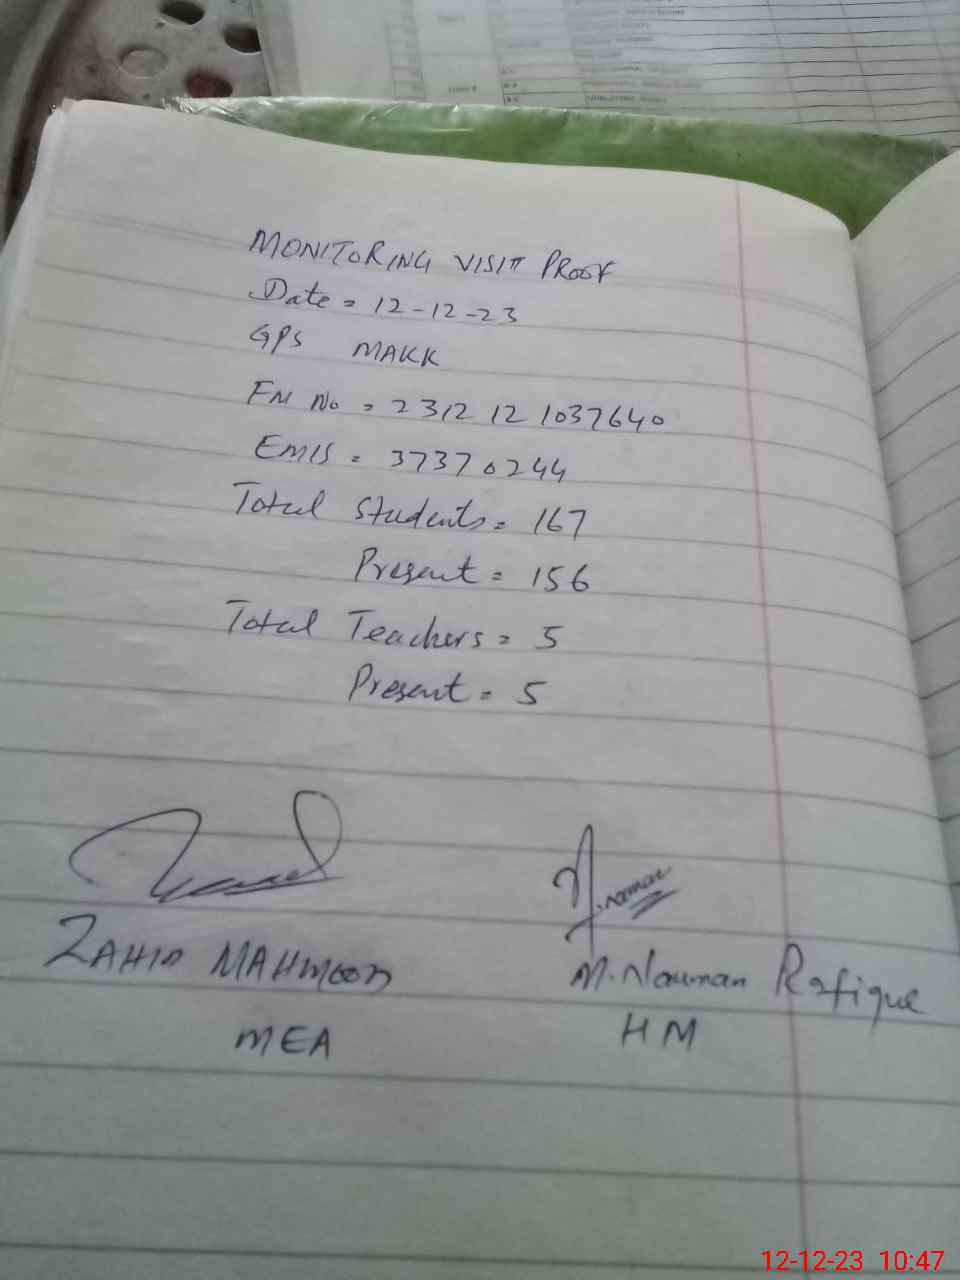 MONITORING VISIT PROOF
Date = 12-12-23
GPS MAKK
FM No = 2312 12 1037640
EMIS = 37370244
Total Students = 167
Present = 156
Total Teachers = 5
Present = 5
M.Noman
ZAHID MAHMOOD
M.Nouman Rafique
MEA
HM
12-12-23 10:47